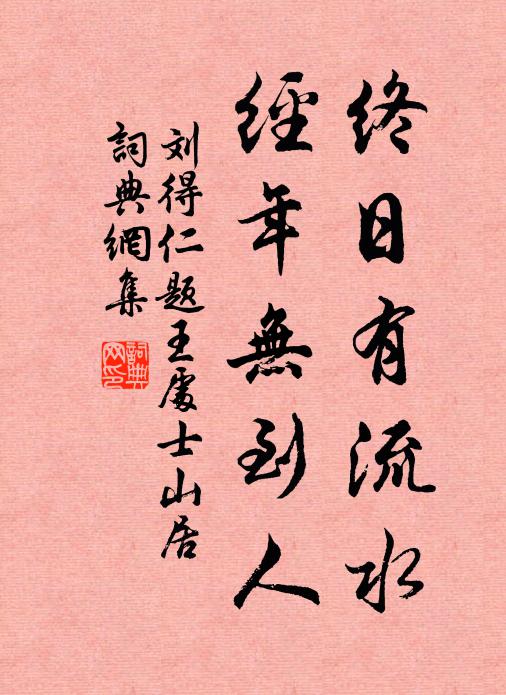 終日有流水
經年無到人
刘得仁题王處士山居
詞典網集
詞典
网印